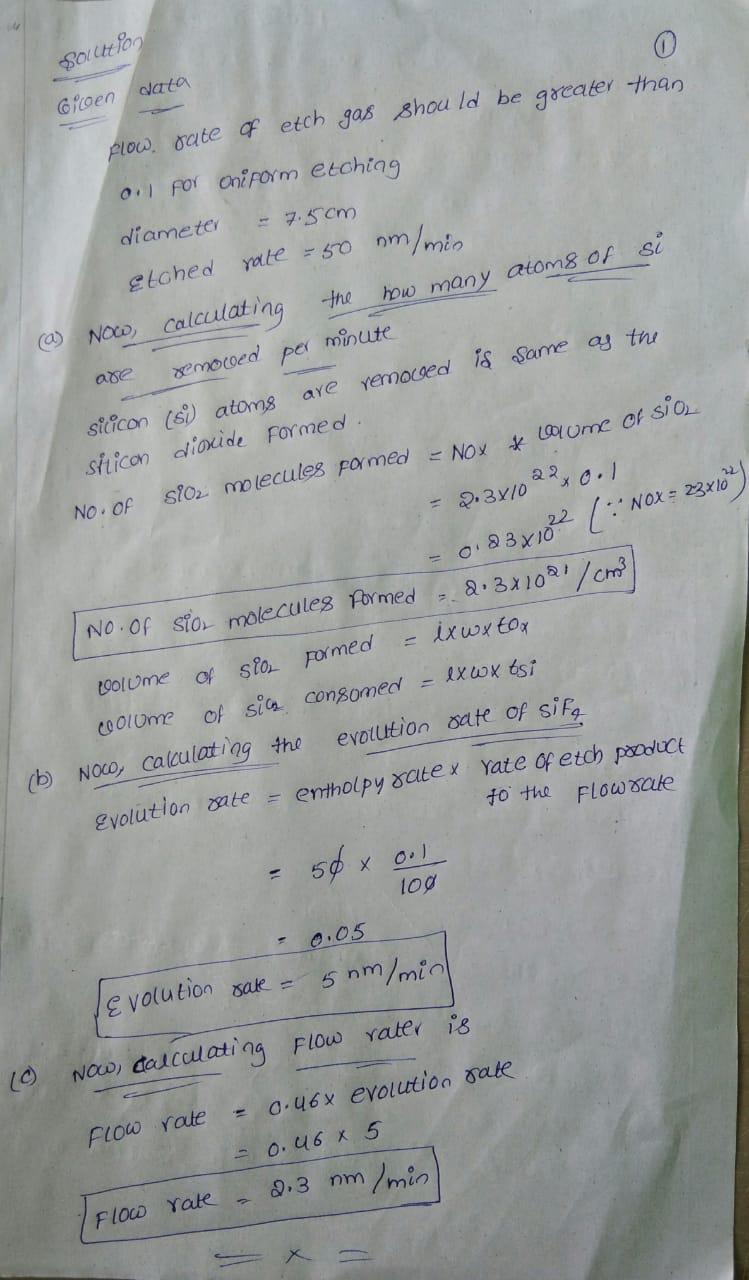 ①
Solution
Given data
Flow rate of etch gas should be greater than
0.1 for uniform etching
diameter = 7.5cm
Etched rate = 50 nm/min
(a) Now, calculating the how many atoms of si
are removed per minute
silicon (si) atoms are removed is same as the
silicon dioxide Formed.
No. of SiO2 molecules formed = NOX * volume of SiO2
= 2.3x10^22 x 0.1
= 0.23x10^22 (∵ NOX = 23x10^22)
No. of SiO2 molecules Formed = 2.3x10^21/cm^3
volume of SiO2 formed = lxwxtox
volume of sio2 consomed = lxwx tsi
(b) Now, calculating the evolution rate of siF4
Evolution rate = entholpy rate x rate of etch product
to the Flowrate
= 50 x 0.1/100
= 0.05
Evolution rate = 5 nm/min
(c) Now, calculating Flow rater is
Flow rate = 0.46x evolution rate
= 0.46 x 5
Flow rate = 2.3 nm/min
= x =